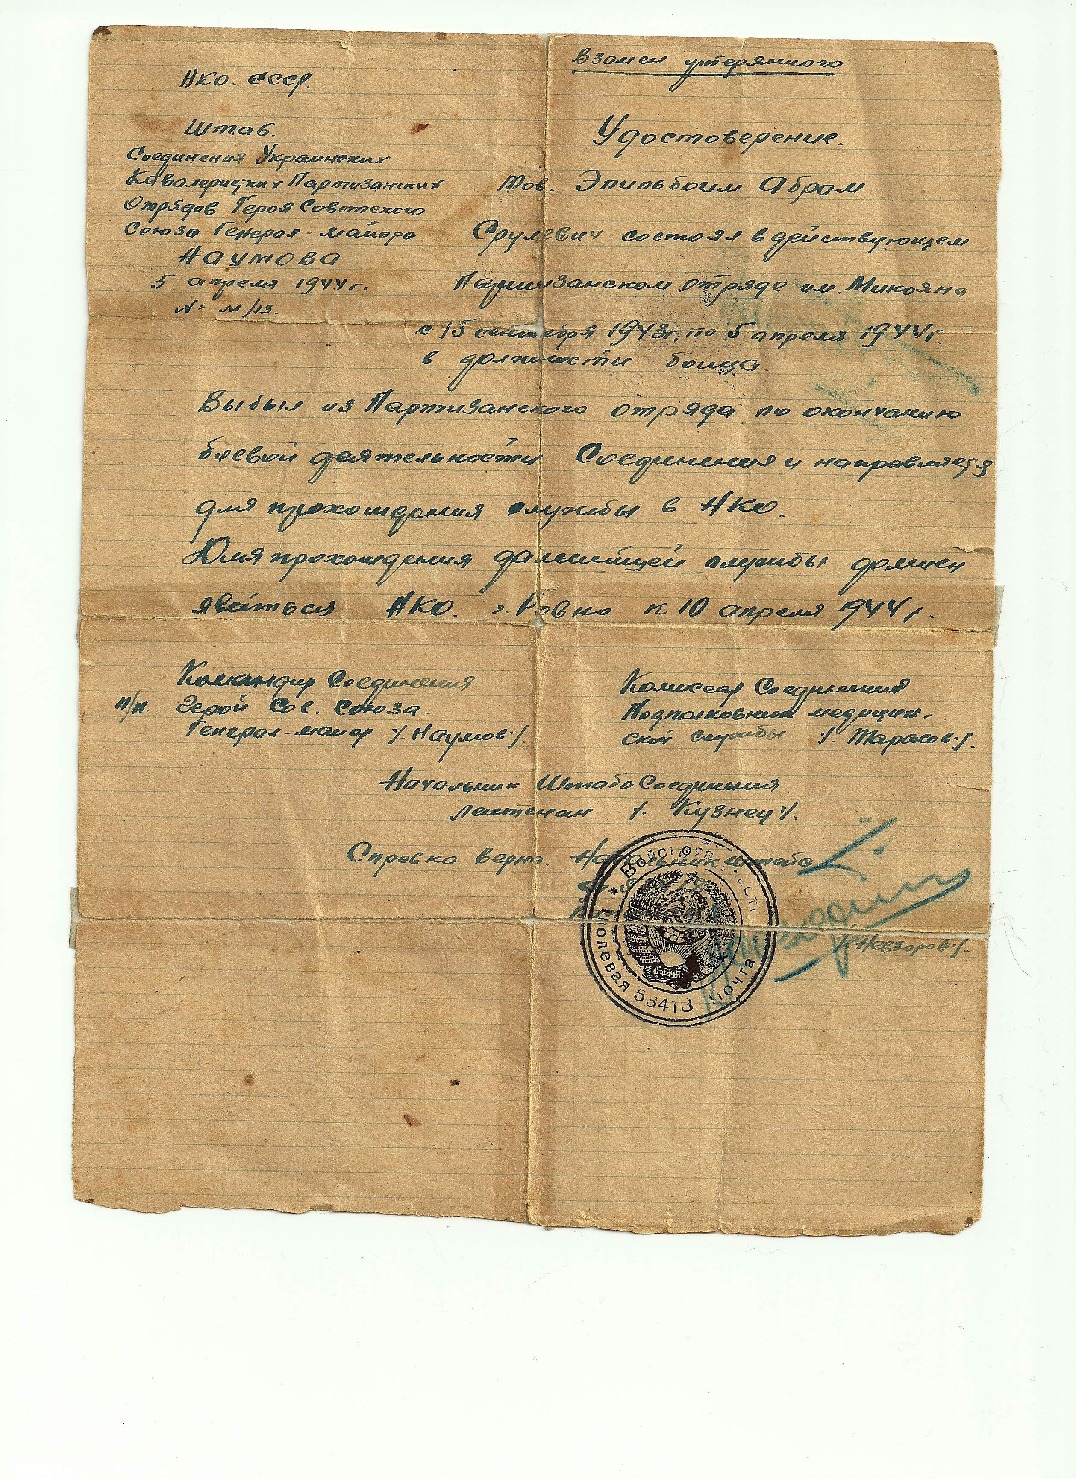 НКО. СССР.
Штаб.
Соединения Украинских
Кавалерицких Партизанских
Отрядов Героя Советского
Союза Генерал-майора
Наумова
5 апреля 1944г.
№ м/13
Взамен утерянного
Удостоверение.
Тов. Эпильбоим Абрам
Срулевич состоял в действующем
Партизанском отряде им. Микояна
с 15 сентября 1943г. по 5 апреля 1944г.
в должности бойца.
Выбыл из Партизанского отряда по окончанию
боевой деятельности Соединения и направляется
для прохождения службы в НКО.
Для прохождения дальнейщей службы должен
явиться НКО. г. Ровно к 10 апреля 1944г.
Командир Соединения
п/п Герой Сов. Союза.
Генерал-майор /Наумов/.
Комиссар Соединения
Подполковник медицин-
ской службы /Тарасов/.
Начальник Штаба Соединения
лейтенан /Кузнец/.
Справка верна. Начальник штаба
/Невзоров/.
Полевая 53413 Почта